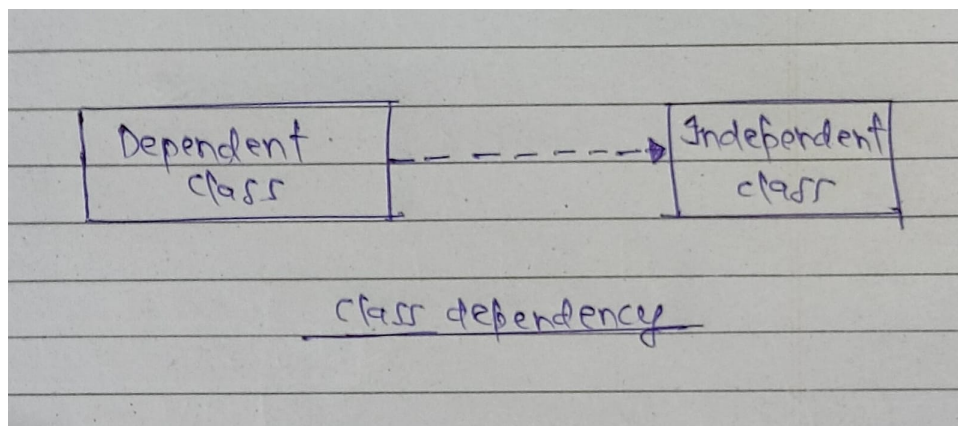 Dependent
class
Independent
class
class dependency